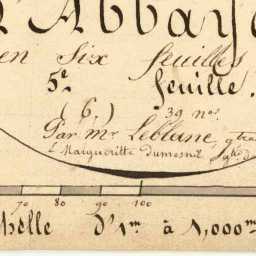 'Abbaye
en Six feuilles
5e feuille.
(6.) 39 nos
Par mr. Leblanc,
Margueritte Dumesnil
70 80 90 100
helle D'1m à 1,000m